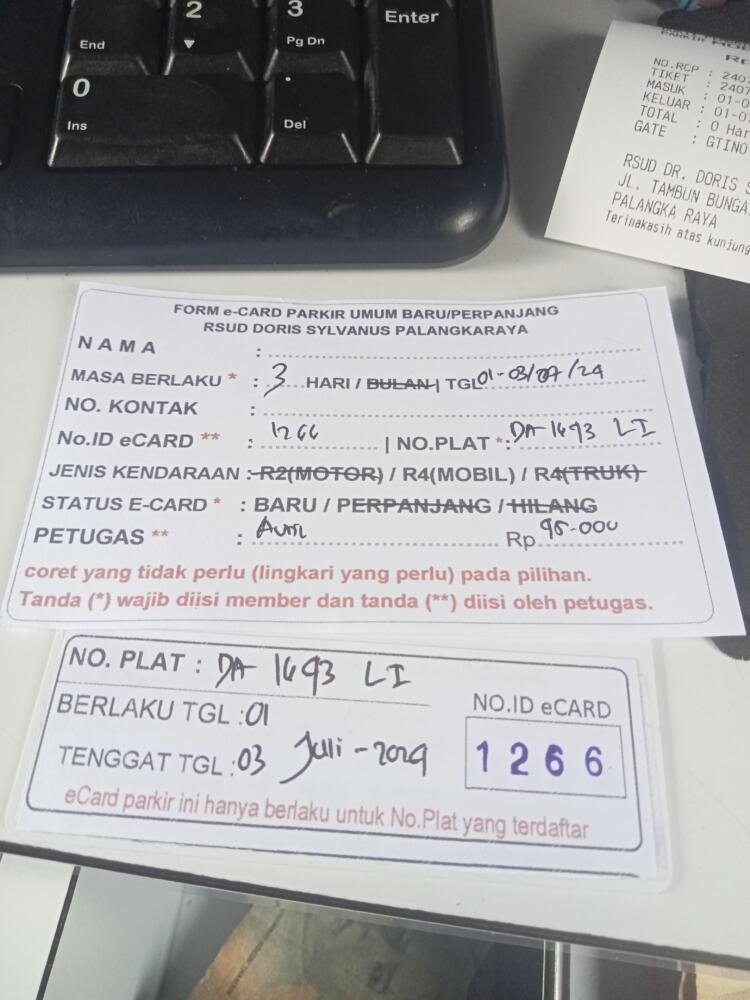 2
3
Enter
End
▼
Pg Dn
0
.
Ins
Del
NO.RCP : 240
TIKET : 2407
MASUK : 01-0
KELUAR : 01-0
TOTAL : 0 Har
GATE : GTINO
RSUD DR. DORIS S
JL. TAMBUN BUNGA
PALANGKA RAYA
Terimakasih atas kunjung
FORM e-CARD PARKIR UMUM BARU/PERPANJANG
RSUD DORIS SYLVANUS PALANGKARAYA
NAMA :
MASA BERLAKU * : 3 HARI / BULAN | TGL 01-03/07/24
NO. KONTAK :
No.ID eCARD ** : 1266 | NO.PLAT *: DA 1693 LI
JENIS KENDARAAN : R2(MOTOR) / R4(MOBIL) / R4(TRUK)
STATUS E-CARD * : BARU / PERPANJANG / HILANG
PETUGAS ** : Rp 95.000
coret yang tidak perlu (lingkari yang perlu) pada pilihan.
Tanda (*) wajib diisi member dan tanda (**) diisi oleh petugas.
NO. PLAT : DA 1693 LI
BERLAKU TGL : 01
TENGGAT TGL : 03 Juli - 2024
NO.ID eCARD
1266
eCard parkir ini hanya berlaku untuk No.Plat yang terdaftar